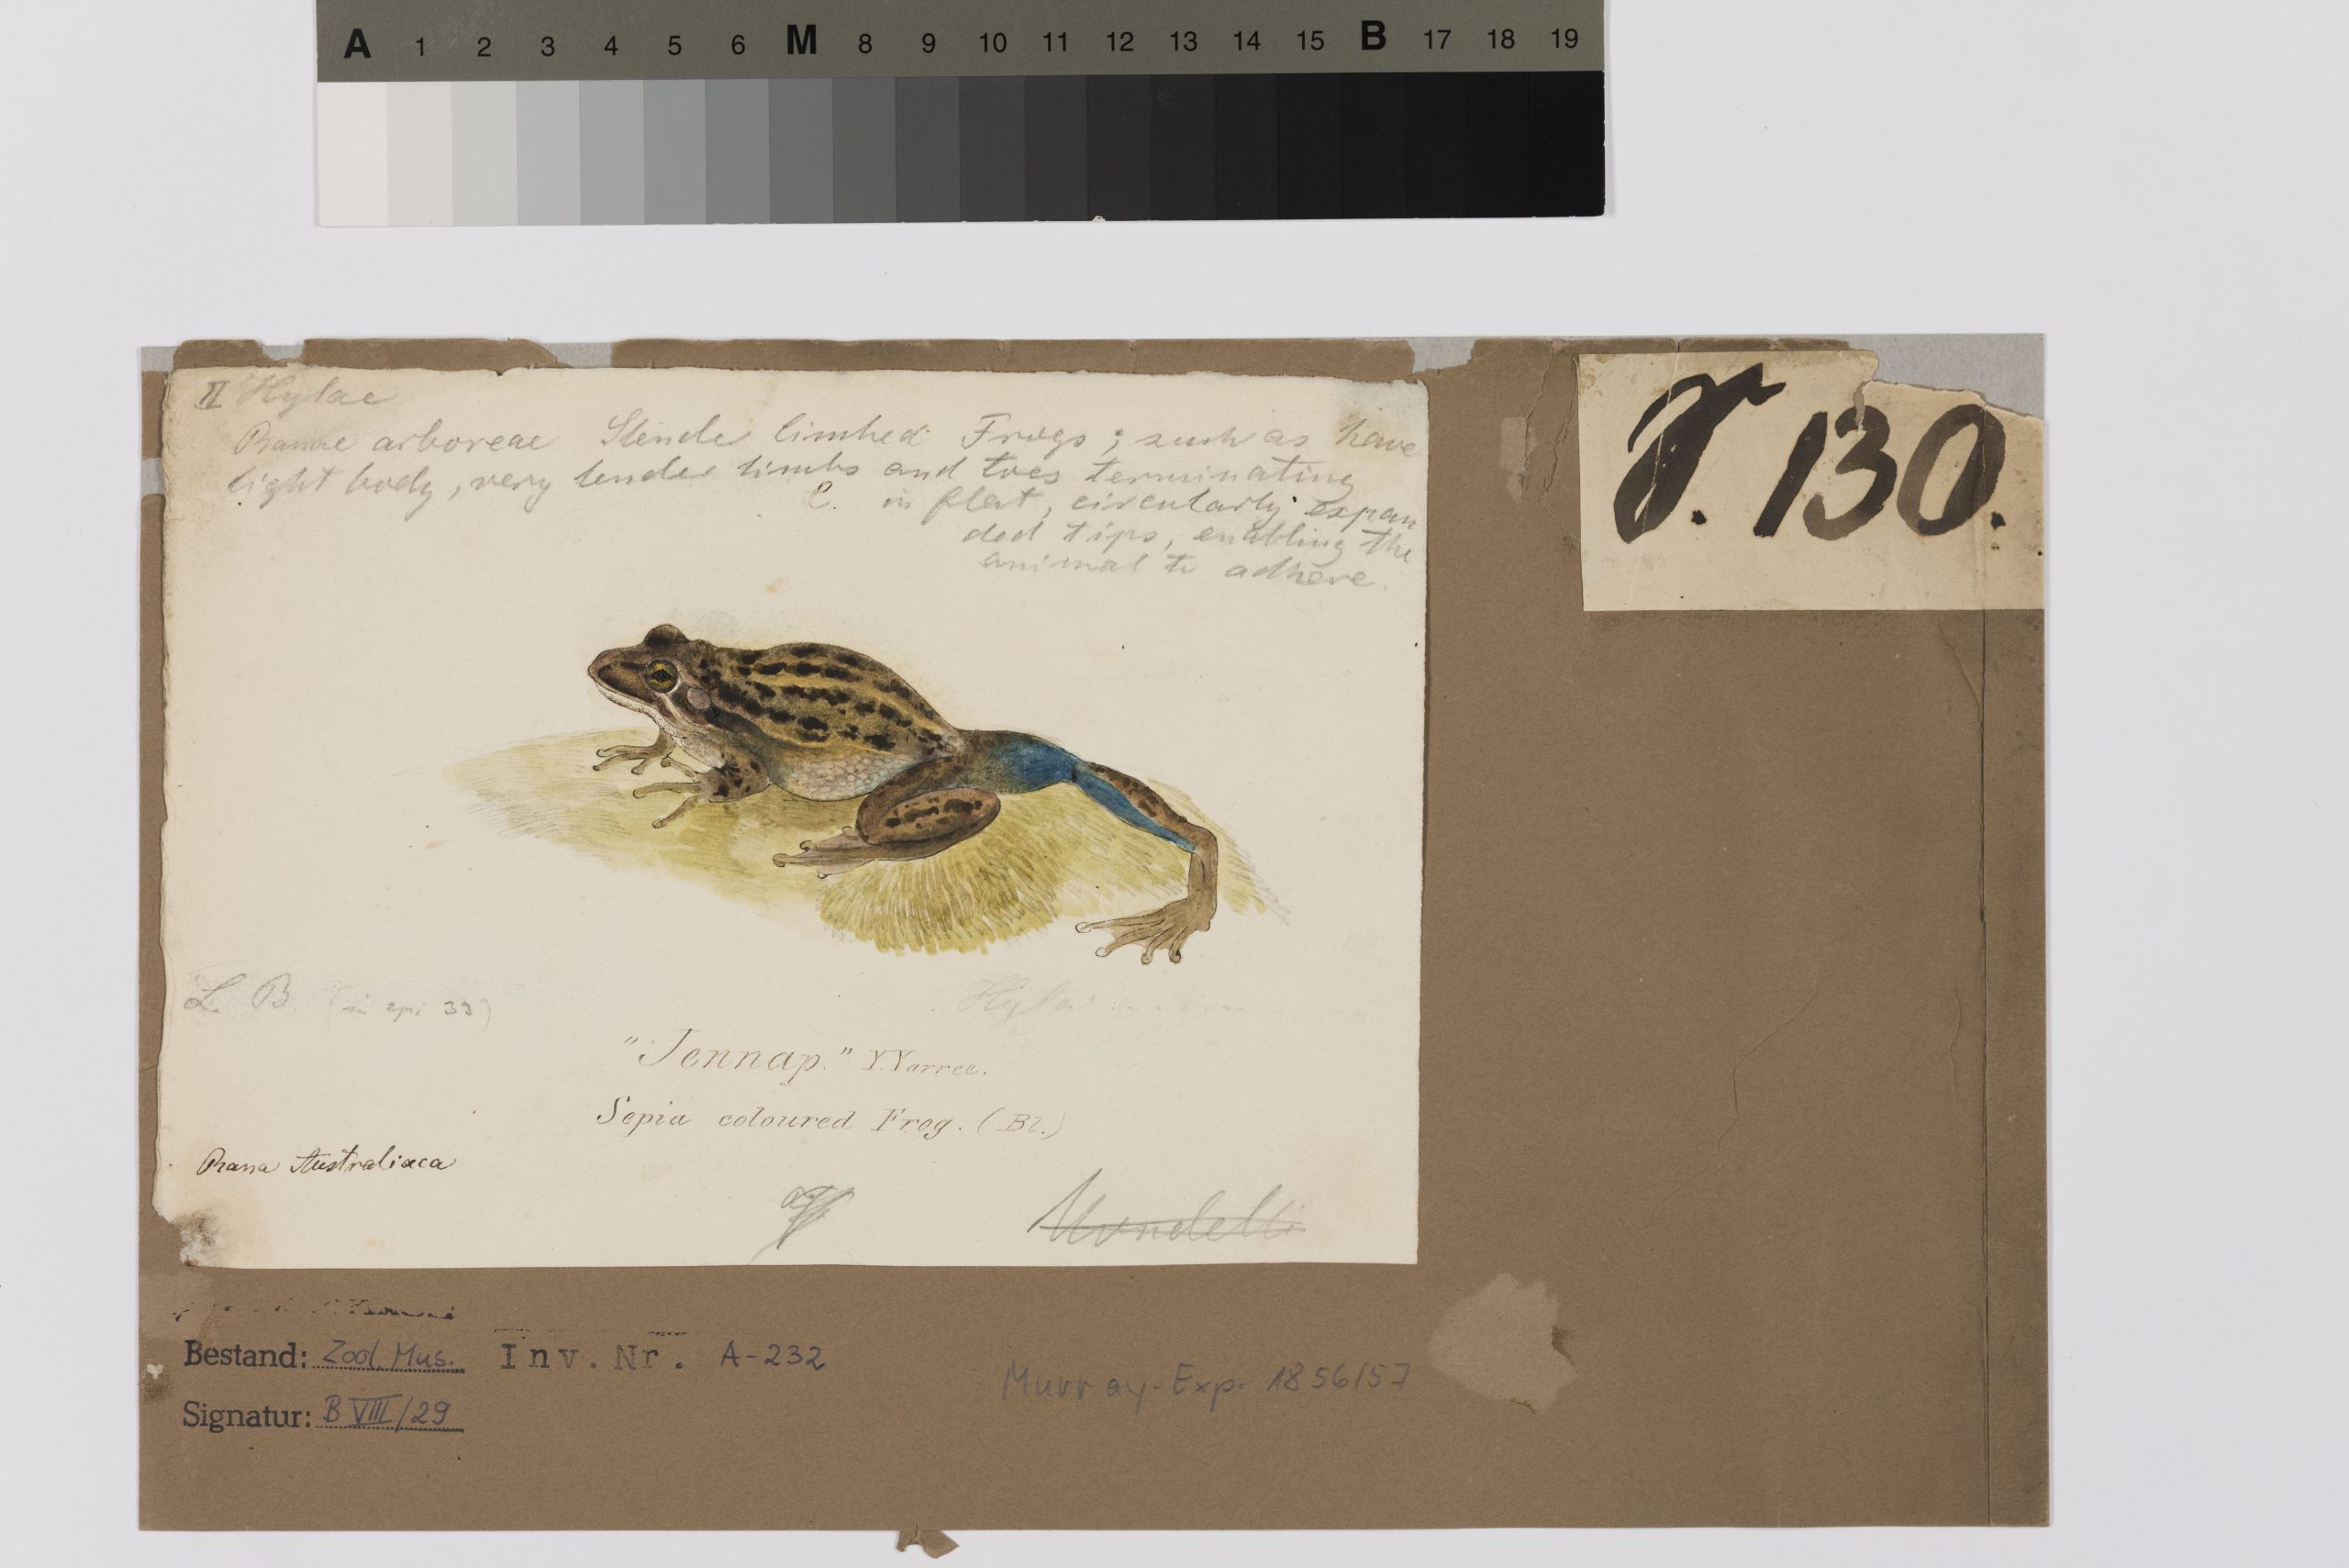 A 1 2 3 4 5 6 M 8 9 10 11 12 13 14 15 B 17 18 19
T. 130.
II Hylae
Ranae arboreae Slender limbed Frogs; such as have
light body, very slender limbs and toes terminating
in flat, circularly expan
ded tips, enabling the
animal to adhere.
L. B. (in 33)
Hyla
"Jennap." Y.Yarree.
Sepia coloured Frog. (Bl.)
Rana Australiaca
Bestand: Zool. Mus. Inv. Nr. A-232
Murray-Exp. 1856/57
Signatur: B VIII/29